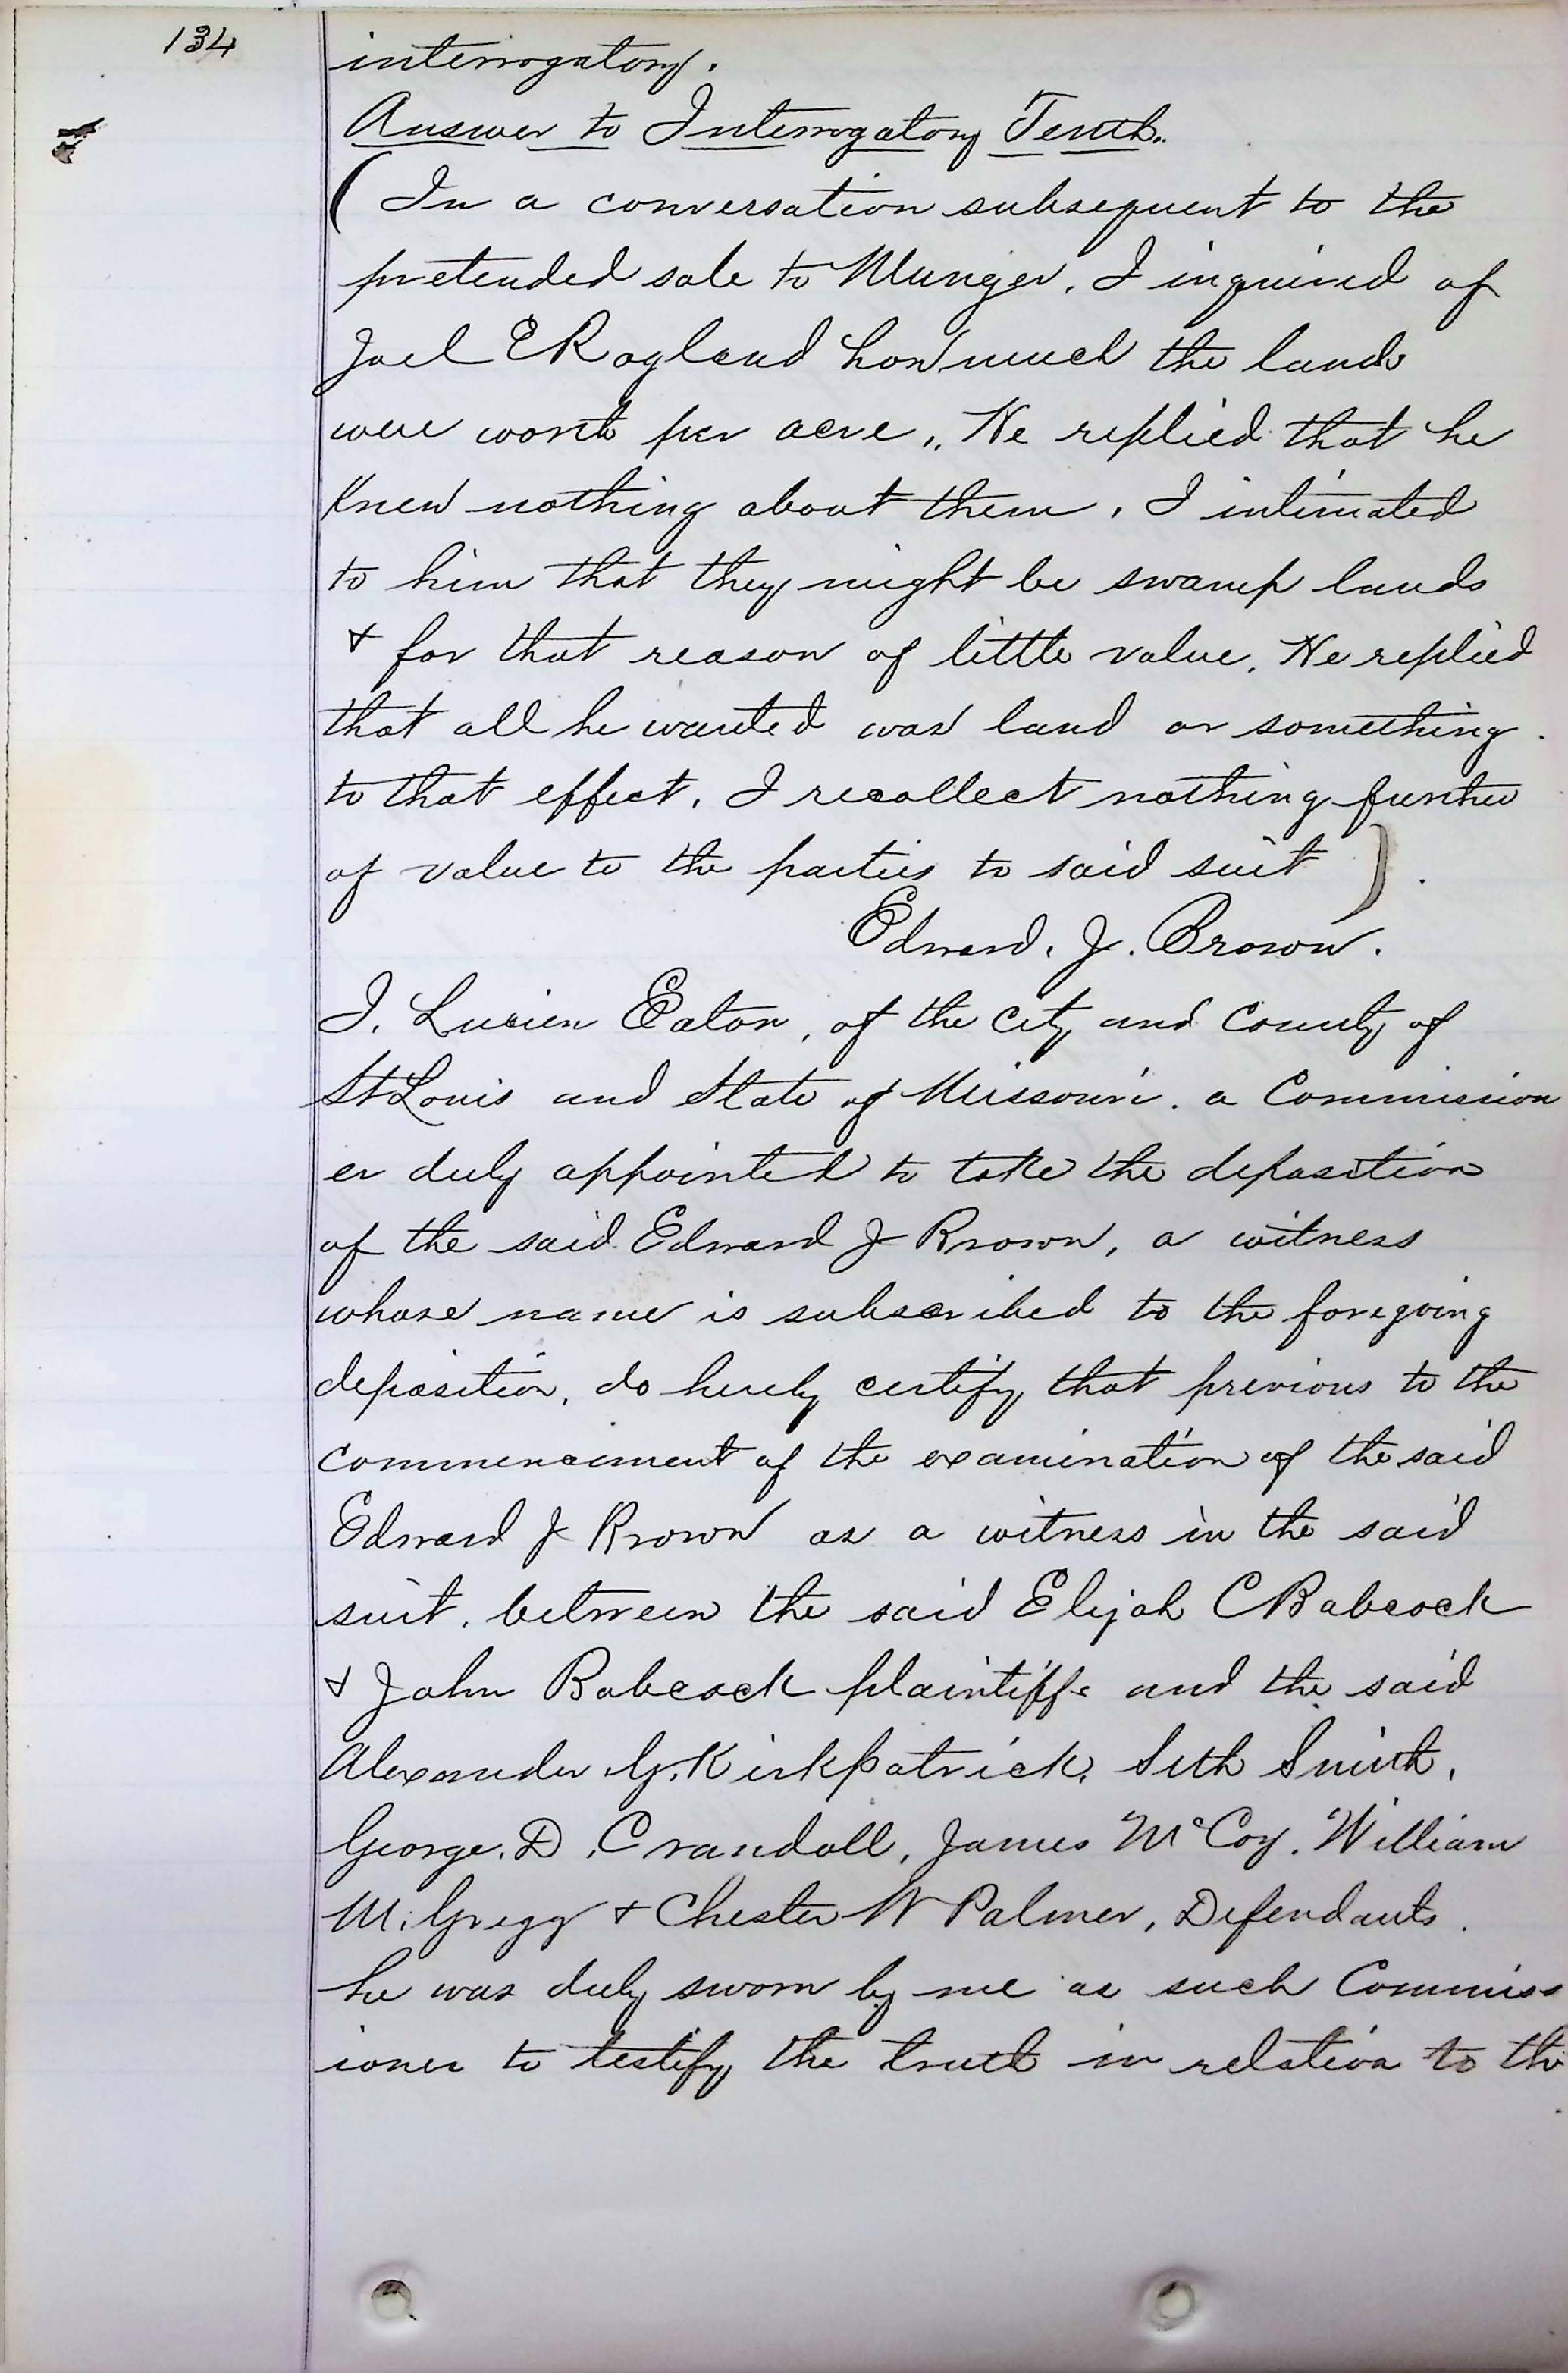 134
interrogatory.
Answer to Interrogatory Tenth.
( In a conversation subsequent to the
pretended sale to Munger. I inquired of
Joel E Ragland how much the lands
were worth per acre,. He replied that he
knew nothing about them, I intimated
to him that they might be swamp lands
& for that reason of little value. He replied
that all he wanted was land or something
to that effect. I recollect nothing further
of value to the parties to said suit ).
Edward. J. Brown.
I. Lucien Eaton, of the city and County of
St Louis and State of Missouri. a Commission
er duly appointed to take the deposition
of the said Edward J Brown, a witness
whose name is subscribed to the foregoing
deposition, do hereby certify that previous to the
commencement of the examination of the said
Edward J Brown as a witness in the said
suit. between the said Elijah C Babcock
& John Babcock plaintiffs and the said
Alexander G. Kirkpatrick, Seth Smith,
George. D. Crandall, James McCoy. William
M. Gregg & Chester W Palmer, Defendants.
he was duly sworn by me as such Commiss
ioner to testify the truth in relation to the